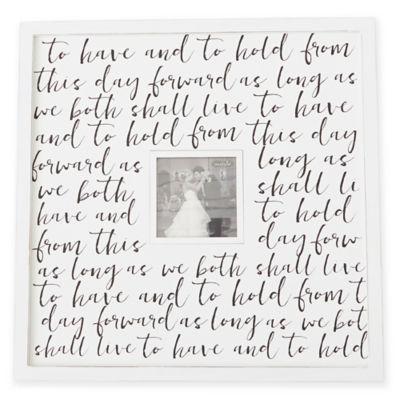 to have and to hold from
this day forward as long as
we both shall live to have
and to hold from this day
forward as long as
we both shall li
have and to hold
from this day forw
as long as we both shall live
to have and to hold from t
day forward as long as we bot
shall live to have and to hold